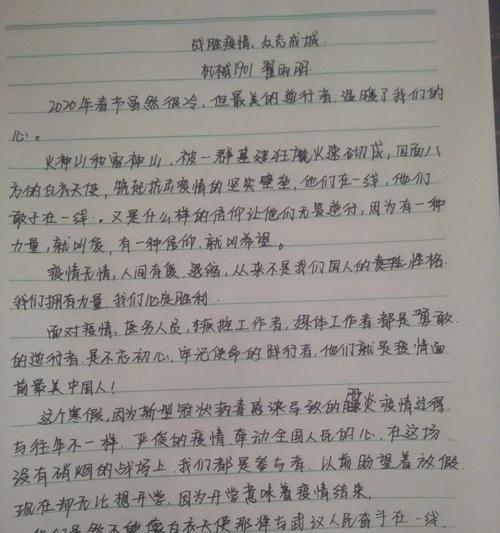 战胜疫情，众志成城.
机械1901
2020年春节虽然很冷，但最美的逆行者，温暖了我们的
心。
火神山和雷神山，被一群基建狂魔火速砌成，四面八
方的白衣天使，筑起抗击疫情的坚实壁垒，他们在一线，他们
敢于在一线。又是什么样的信仰让他们无畏逆行，因为有一种
力量，就叫爱，有一种信仰，就叫希望。
疫情无情，人间有爱，退缩，从来不是我们国人的性格
我们拥有力量，我们必定胜利.
面对疫情，医务人员，疾控工作者，媒体工作者，都是勇敢
的逆行者，是不忘初心，牢记使命的践行者，他们就是疫情面
前最美中国人！
这个寒假，因为新型冠状病毒感染导致的肺炎疫情过得
与往年不一样，严俊的疫情，牵动全国人民的心，在这场
没有硝烟的战场上，我们都是参与者，以前盼望着放假
现在却无比想开学，因为开学意味着疫情结束.
我们虽然不能像白衣天使那样与武汉人民奋斗在一线